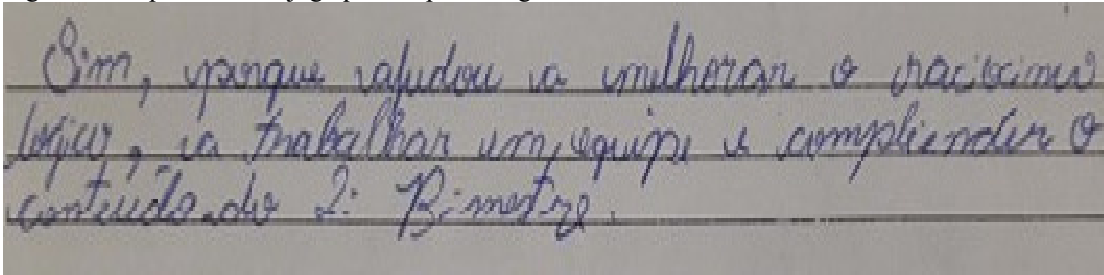 Sim, porque ajudou a melhorar o raciocinio
lógico, a trabalhar em equipe e compreender o
conteúdo do 2º Bimestre.